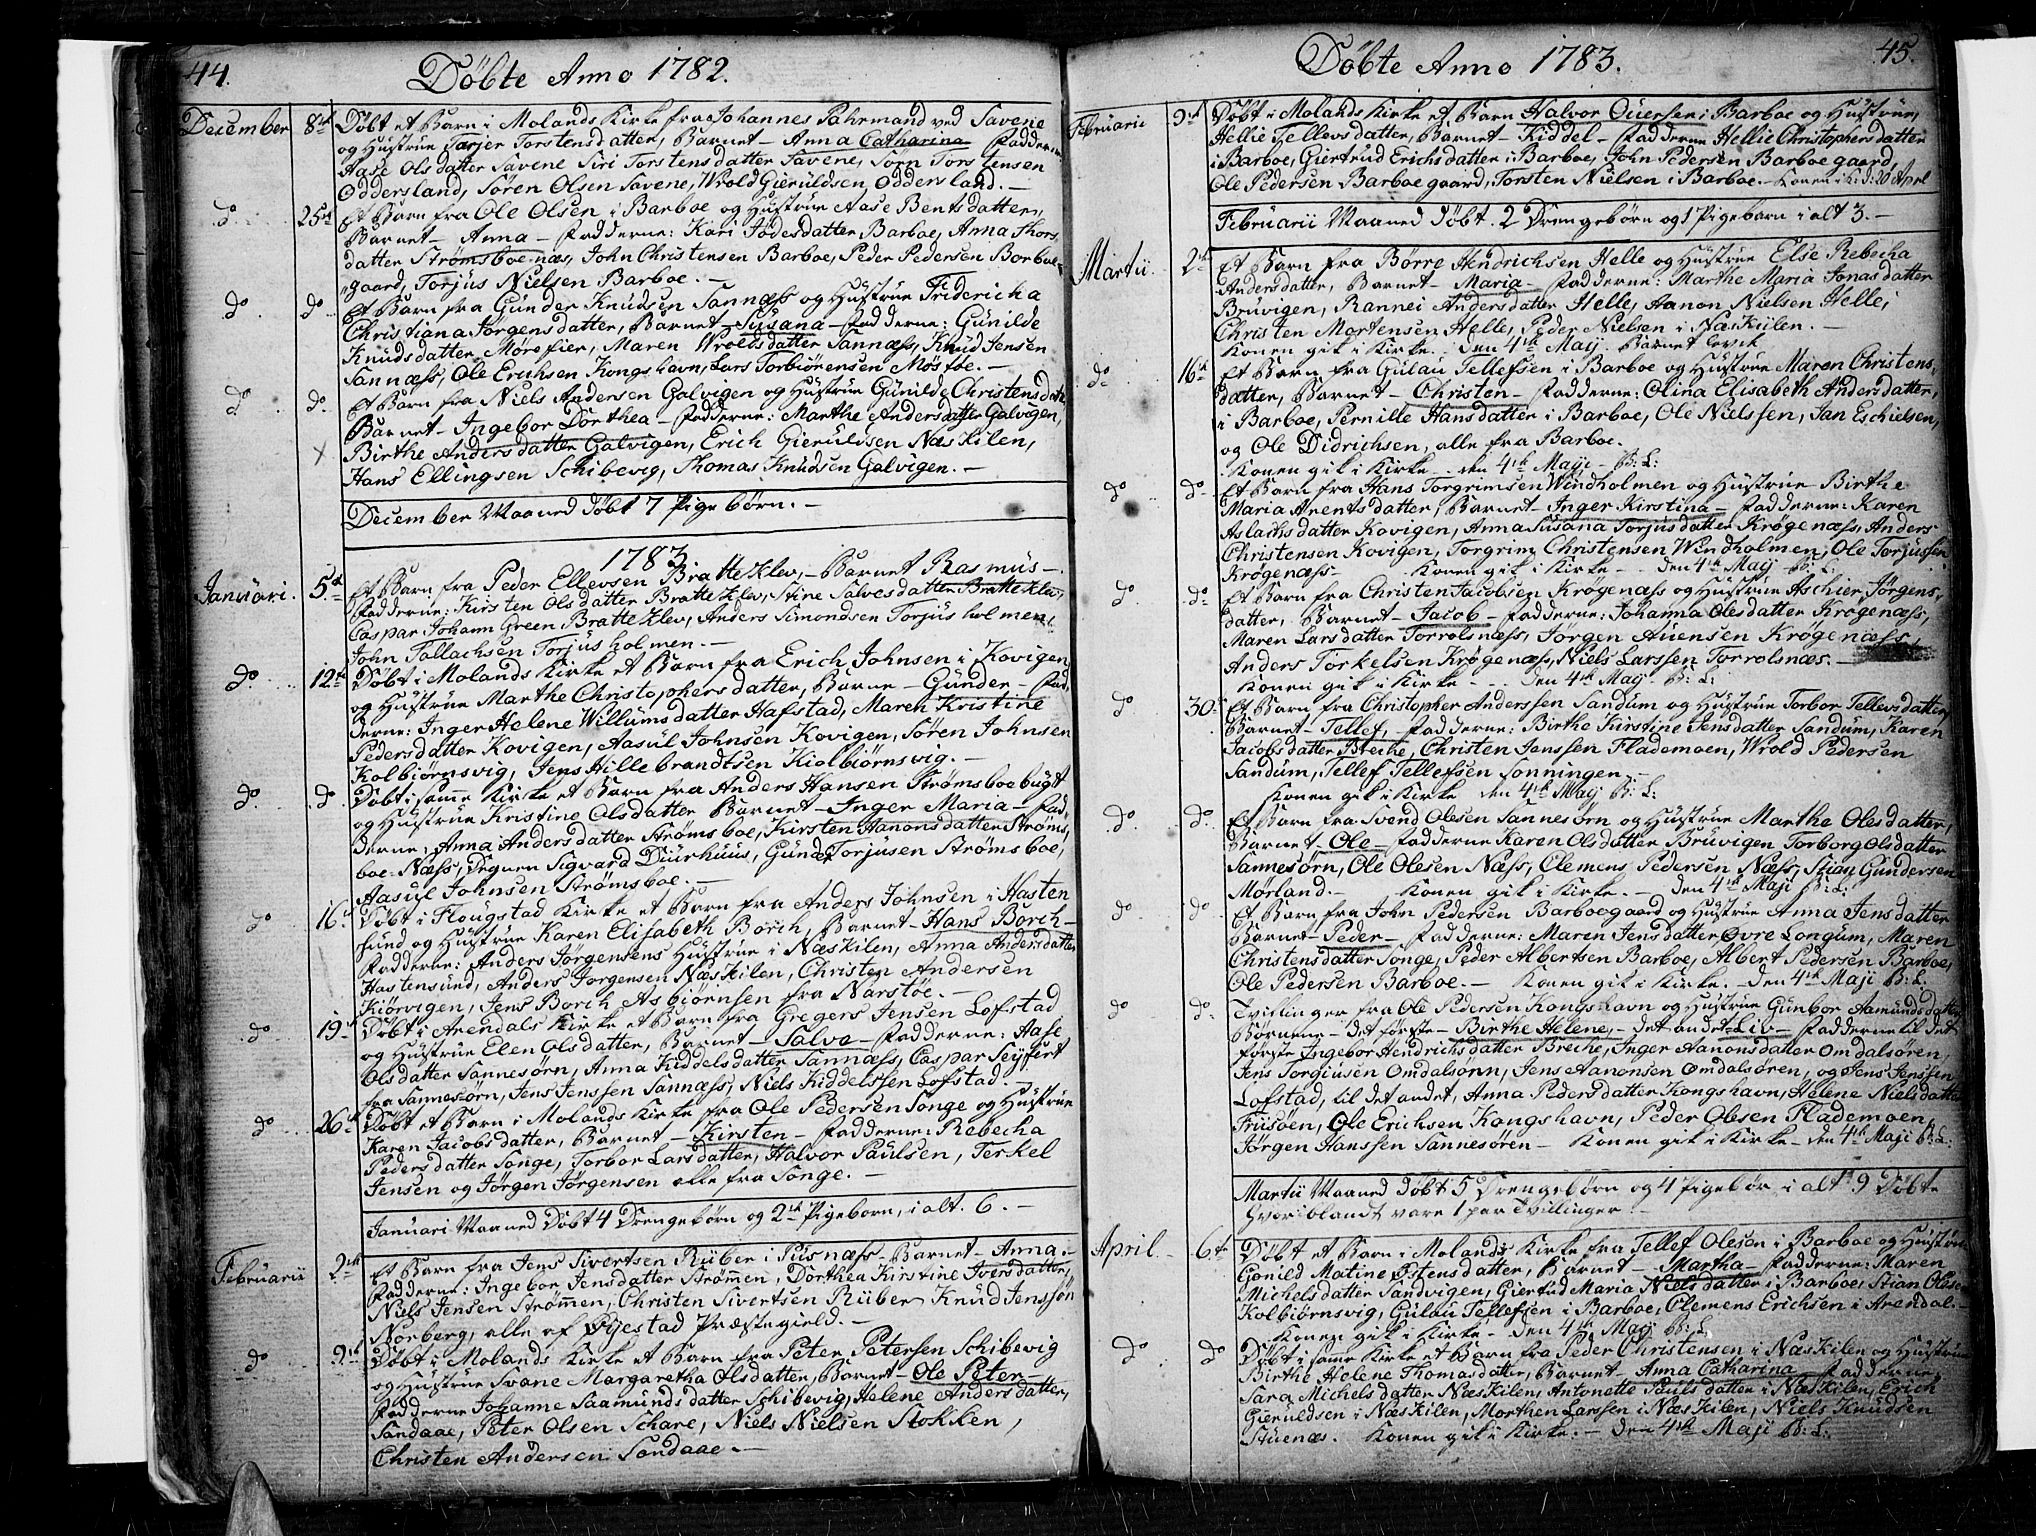 44.
Døbte Anno 1782.
December 8de Døbt et Barn i Molands Kirke fra Johannes Pahrmand ved Savene
og Hustrue Tarjer Torstensdatter, Barnet - Anna Catharina Fadderne
Aase Olsdatter Savene Siri Torstensdatter Savene, Jørn Jens Jensen
Oddersland, Søren Olsen Savene, Wrold Gieruldsen, Oddersland. -
do 25de Et Barn fra Ole Olsen i Barboe og Hustrue Aase Bentsdatter,
Barnet - Anna - Fadderne: Kari Jødesdatter Barboe, Anna Thors
datter Strømsboenæs, John Christensen Barboe, Peder Pedersen Borboe
gaard, Torjus Nielsen Barboe. -
do do Et Barn fra Gunder Knudsen Sannæss og Hustrue Friderica
Christiana Jørgensdatter, Barnet - Susana - Fadderne: Gunilde
Knudsdatter Mørefier, Maren Wroldsdatter Sannæss, Knud Jensen
Sannæss, Ole Erichsen Kongshavn, Lars Torbiørensen Møsfoe. -
do do Et Barn fra Niels Andersen Galvigen og Hustrue Gunilde Christensdatr
Barnet - Ingebor Dorthea - Fadderne: Marthe Andersdatter Galvigen,
Birthe Andersdatter Galvigen, Erich Gieruldsen Næskilen,
Hans Ellingsen Schibevig, Thomas Knudsen Galvigen. -
December Maaned Døbt 7 Pigebørn. -
1783
Januari. 5te Et Barn fra Peder Ellevsen Bratteklev, - Barnet Rasmus -
Fadderne: Kirsten Olsdatter Bratteklev, Stine Salvesdatter Bratteklev,
Caspar Johann Green Bratteklev, Anders Simondsen Torjusholmen,
John Tallachsen Torjusholmen. -
do 12te Døbt i Molands Kirke et Barn fra Erich Johnsen i Kovigen
og Hustrue Marthe Christophersdatter, Barne - Gunder - Fad,
derne: Inger Helene Willumsdatter Hafstad, Maren Kristine
Pedersdatter Kovigen, Aasul Johnsen Kovigen, Søren Johnsen
Kolbiørnsvig, Jens Hillebrandtsen Kiolbiørnsvig. -
do do Døbt i samme Kirke et Barn fra Anders Hansen Strømsboebugt
og Hustrue Kristine Olsdatter Barnet - Inger Maria - Fad
derne: Anna Andersdatter Strømsboe, Kirsten Aanonsdatter Strøms,
boe-Næss, Degnen Sigvard Duurhuus, Gunder Torjusen Strømsboe,
Aasul Johnsen Strømsboe. -
do 16de Døbt i Flougstad Kirke et Barn fra Anders Johnsen i Hasten
sund og Hustrue Karen Elisabeth Borch, Barnet - Hans Borch -
Fadderne: Anders Jørgensens Hustrue i Næskilen, Anna Andersdatter
Hastensund, Anders Jørgensen Næskilen, Christen Andersen
Kiørvigen, Jens Borch Asbiørnsen fra Narstøe. -
do 19de Døbt i Arendals Kirke et Barn fra Gregers Jensen Lofstad
og Hustrue Elen Olsdatter, Barnet - Salve - Fadderne: Aase
Olsdatter Sannesørn, Anna Kiddelsdatter Sannæss, Caspar Seyfert
fra Sannesørn, Jens Jenssen Sannæss, Niels Kiddelssen Lofstad. -
do 26de Døbt et Barn i Molands Kirke fra Ole Pedersen Songe og Hustrue
Karen Jacobsdatter, Barnet - Kirsten - Fadderne: Rebecha
Pedersdatter Songe, Torbor Larsdatter, Halvor Paulsen, Terkel
Jensen og Jørgen Jørgensen alle fra Songe. -
Januari Maaned Døbt 4 Drengebørn og 2de Pigeborn, i alt. 6. -
Februarii 2de Et Barn fra Jens Sivertsen Rüber i Pusnæss - Barnet - Anna. -
Fadderne: Ingebor Jensdatter Strømen, Dorthea Kirstine Iversdatter,
Niels Jensen Strømen, Christen Sivertsen Rüber Knud Jenssøn
Norberg, alle af Øyestad Præstegield. -
do 9de Døbt i Molands Kirke et Barn fra Peter Petersen Schibevig
og Hustrue Svane Margaretha Olsdatter, Barnet - Ole Peter -
Fadderne Johanne Saamundsdatter Schibevig, Helene Andersdatter,
Sandaae, Peter Olsen Schare, Niels Nielsen Stokken,
Christen Andersen Sandaae. -
45.
Døbte Anno 1783.
Februarii 9de Døbt i Molands Kirke et Barn Halvor Ouersen i Barboe og Hustrue,
Hellie Tellevsdatter, Barnet - Kiddel - Fadderne Hellie Christophersdatter
i Barboe, Giertrud Erichsdatter i Barboe, John Pedersen Barboegaard,
Ole Pedersen Barboegaard, Torsten Nielsen i Barboe. - Konen i K: d: 20 Aprl
Februarii Maaned Døbt. 2 Drengebørn og 1 Pigebarn i alt 3. -
Martii 2de Et Barn fra Børre Hendrichsen Helle og Hustrue Else Rebecha
Andersdatter, Barnet - Maria - Fadderne: Marthe Maria Jonasdatter
Bruvigen, Rannei Andersdatter Helle, Aanon Nielsen Helle,
Christen Mortensen Helle, Peder Nielsen i Næskiilen. -
Konen gik i Kirke. den 4de Maij. Barnet levende
do 16de Et Barn fra Gulau Tellefsen i Barboe og Hustrue Maren Christens,
datter, Barnet - Christen - Fadderne: Olina Elisabeth Andersdatter,
i Barboe, Pernille Hansdatter i Barboe, Ole Nielssen, Jan Eschielsen,
og Ole Didrichsen, alle fra Barboe.
Konen gik i Kirke - den 4de Maji - B: L:
do do Et Barn fra Hans Torgrimsen Windholmen og Hustrue Birthe
Maria Arentsdatter, Barnet - Inger Kirstina - Fadderne: Karen
Aslachsdatter Kovigen, Anna Susana Torjusdatter Krøgenæss, Anders
Christensen Kovigen, Torgrim Christensen Windholmen, Ole Torjussen
Krøgenæss - Konen gik i Kirke - den 4de Maij B: L:
do do Et Barn fra Christen Jacobsen Krøgenæss og Hustrue Aschier Jørgens,
datter, Barnet - Jacob - Fadderne: Johanna Olesdatter Krøgenæss,
Maren Larsdatter Torrolsnæss, Jørgen Auensen Krøgenæss,
Anders Torkelsen Krøgenæss, Niels Larssen Torrolsnæs. -
Konen gik i Kirke - - den 4de Maij B: L:
do 30 Et Barn fra Christopher Anderssen Sandum og Hustrue Torbor Tellevsdatter,
Barnet - Tellef - Fadderne: Birthe Kirstine Jensdatter Sandum, Karen
Jacobsdatter Breche, Christen Jenssen Flademoen, Wrold Pedersen
Sandum, Tellef Tellefsen Lonningen. -
Konen gik i Kirke den 4de Maij B: L:
do do Et Barn fra Svend Olesen Sannesørn og Hustrue Marthe Olesdatter,
Barnet - Ole - Fadderne Karen Olsdatter Bruvigen Torborg Olsdatter
Sannesørn, Ole Olesen Næss, Clemens Pedersen Næss, Stian Gundersen
Mørland. - Konen gik i Kirke. - den 4de Maji B: L:
do do Et Barn fra John Pedersen Barboegaard og Hustrue Anna Jensdatter
Barnet - Peder - Fadderne: Maren Jensdatter Øvre Longum, Maren
Christensdatter Songe, Peder Albertsen Barboe, Albert Pedersen Barboe,
Ole Pedersen Barboe. - Konen gik i Kirke. - Den 4de Maji B: L:
do do Tvillinger fra Ole Pedersen Kongshavn og Hustrue Gunbor Aamundsdatter
Børnene - det første - Birthe Helene, - det andet Liv - Fadderne til det
første Ingebor Hendrichsdatter Breche, Inger Aanonsdatter Omdalsøren,
Jens Torgiusen Omdalsorn, Jens Aanonsen Omdalsøren, og Jens Jenssen
Lofstad, til det andet, Anna Pedersdatter Kongshavn, Helene Nielsdatter
Friisøen, Ole Erichsen Kongshavn, Peder Olesen Flademoen,
Jørgen Hanssen Sannesøren - Konen gik i Kirke - den 4de Maji B: L:
Martii Maaned Døbt 5 Drengebørn og 4 Pigebør, i alt 9 Døbte
Hvoriblandt vare 1 par Tvillinger
April. 6te Døbt et Barn i Molands Kirke fra Tellef Oleson i Barboe og Hustrue
Gonild Matine Østensdatter, Barnet - Martha - Fadderne: Maren
Michelsdatter Sandvigen, Giertud Maria Nielsdatter i Barboe, Stian Olesen
Kolbiørnsvig, Gulau Tellefsen i Barboe, Clemens Erichsen i Arendal. -
Konen gik i Kirke - Den 4de Maij B: L:
do do Døbt i samme Kirke et Barn fra Peder Christensen i Næskilen og Hustrue
Birthe Helene Thomasdatter, Barnet - Anna Catharina - Fadderne,
Sara Michelsdatter Næskilen, Antonette Paulsdatter i Næskilen, Erich
Gieruldsen i Næskilen, Morthen Larssen i Næskilen, Niels Knudsen
Stuenæs. Konen gik i Kirke. - Den 4de Maji B: L: